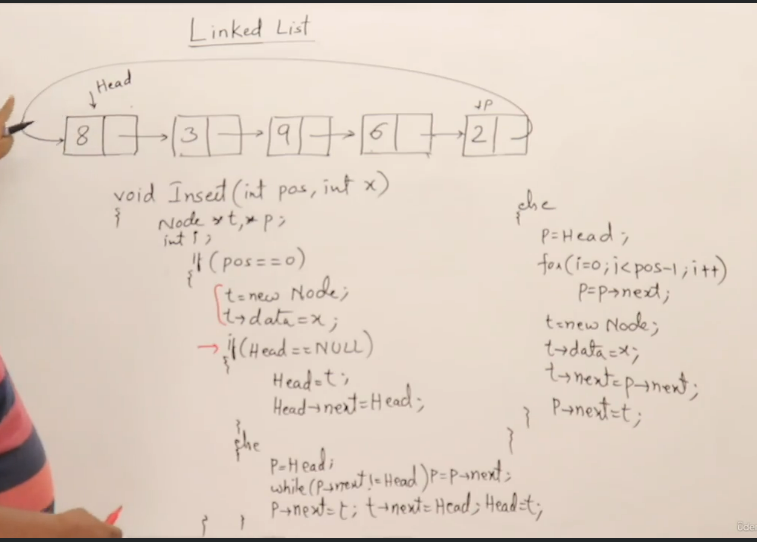 Linked List
Head
P
8 3 9 6 2
void Insert(int pos, int x)
{ Node *t,*p;
int i;
if(pos==0)
{
t=new Node;
t→data=x;
→ if(Head==NULL)
{
Head=t;
Head→next=Head;
}
else
P=Head;
while(P→next!=Head)P=P→next;
P→next=t; t→next=Head; Head=t;
} }
else
{
P=Head;
for(i=0;i<pos-1;i++)
P=P→next;
t=new Node;
t→data=x;
t→next=P→next;
P→next=t;
}
}